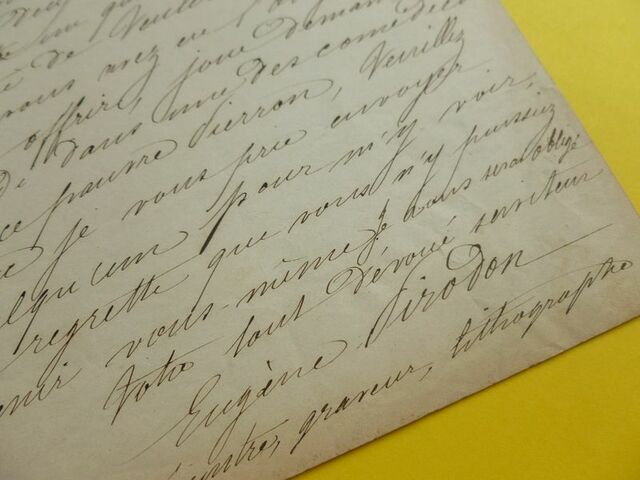 que
é de
vous avez eu l'
offrir, joue deman
dans une des comédie
ce pauvre Pierron, Veuillez
e je vous prie envoyer
elqu'un pour m'y voir,
regrette que vous n'y puissiez
enir vous-même je vous serai obligé
Votre tout dévoué serviteur
Eugène Sirodon
intre, graveur, lithographe